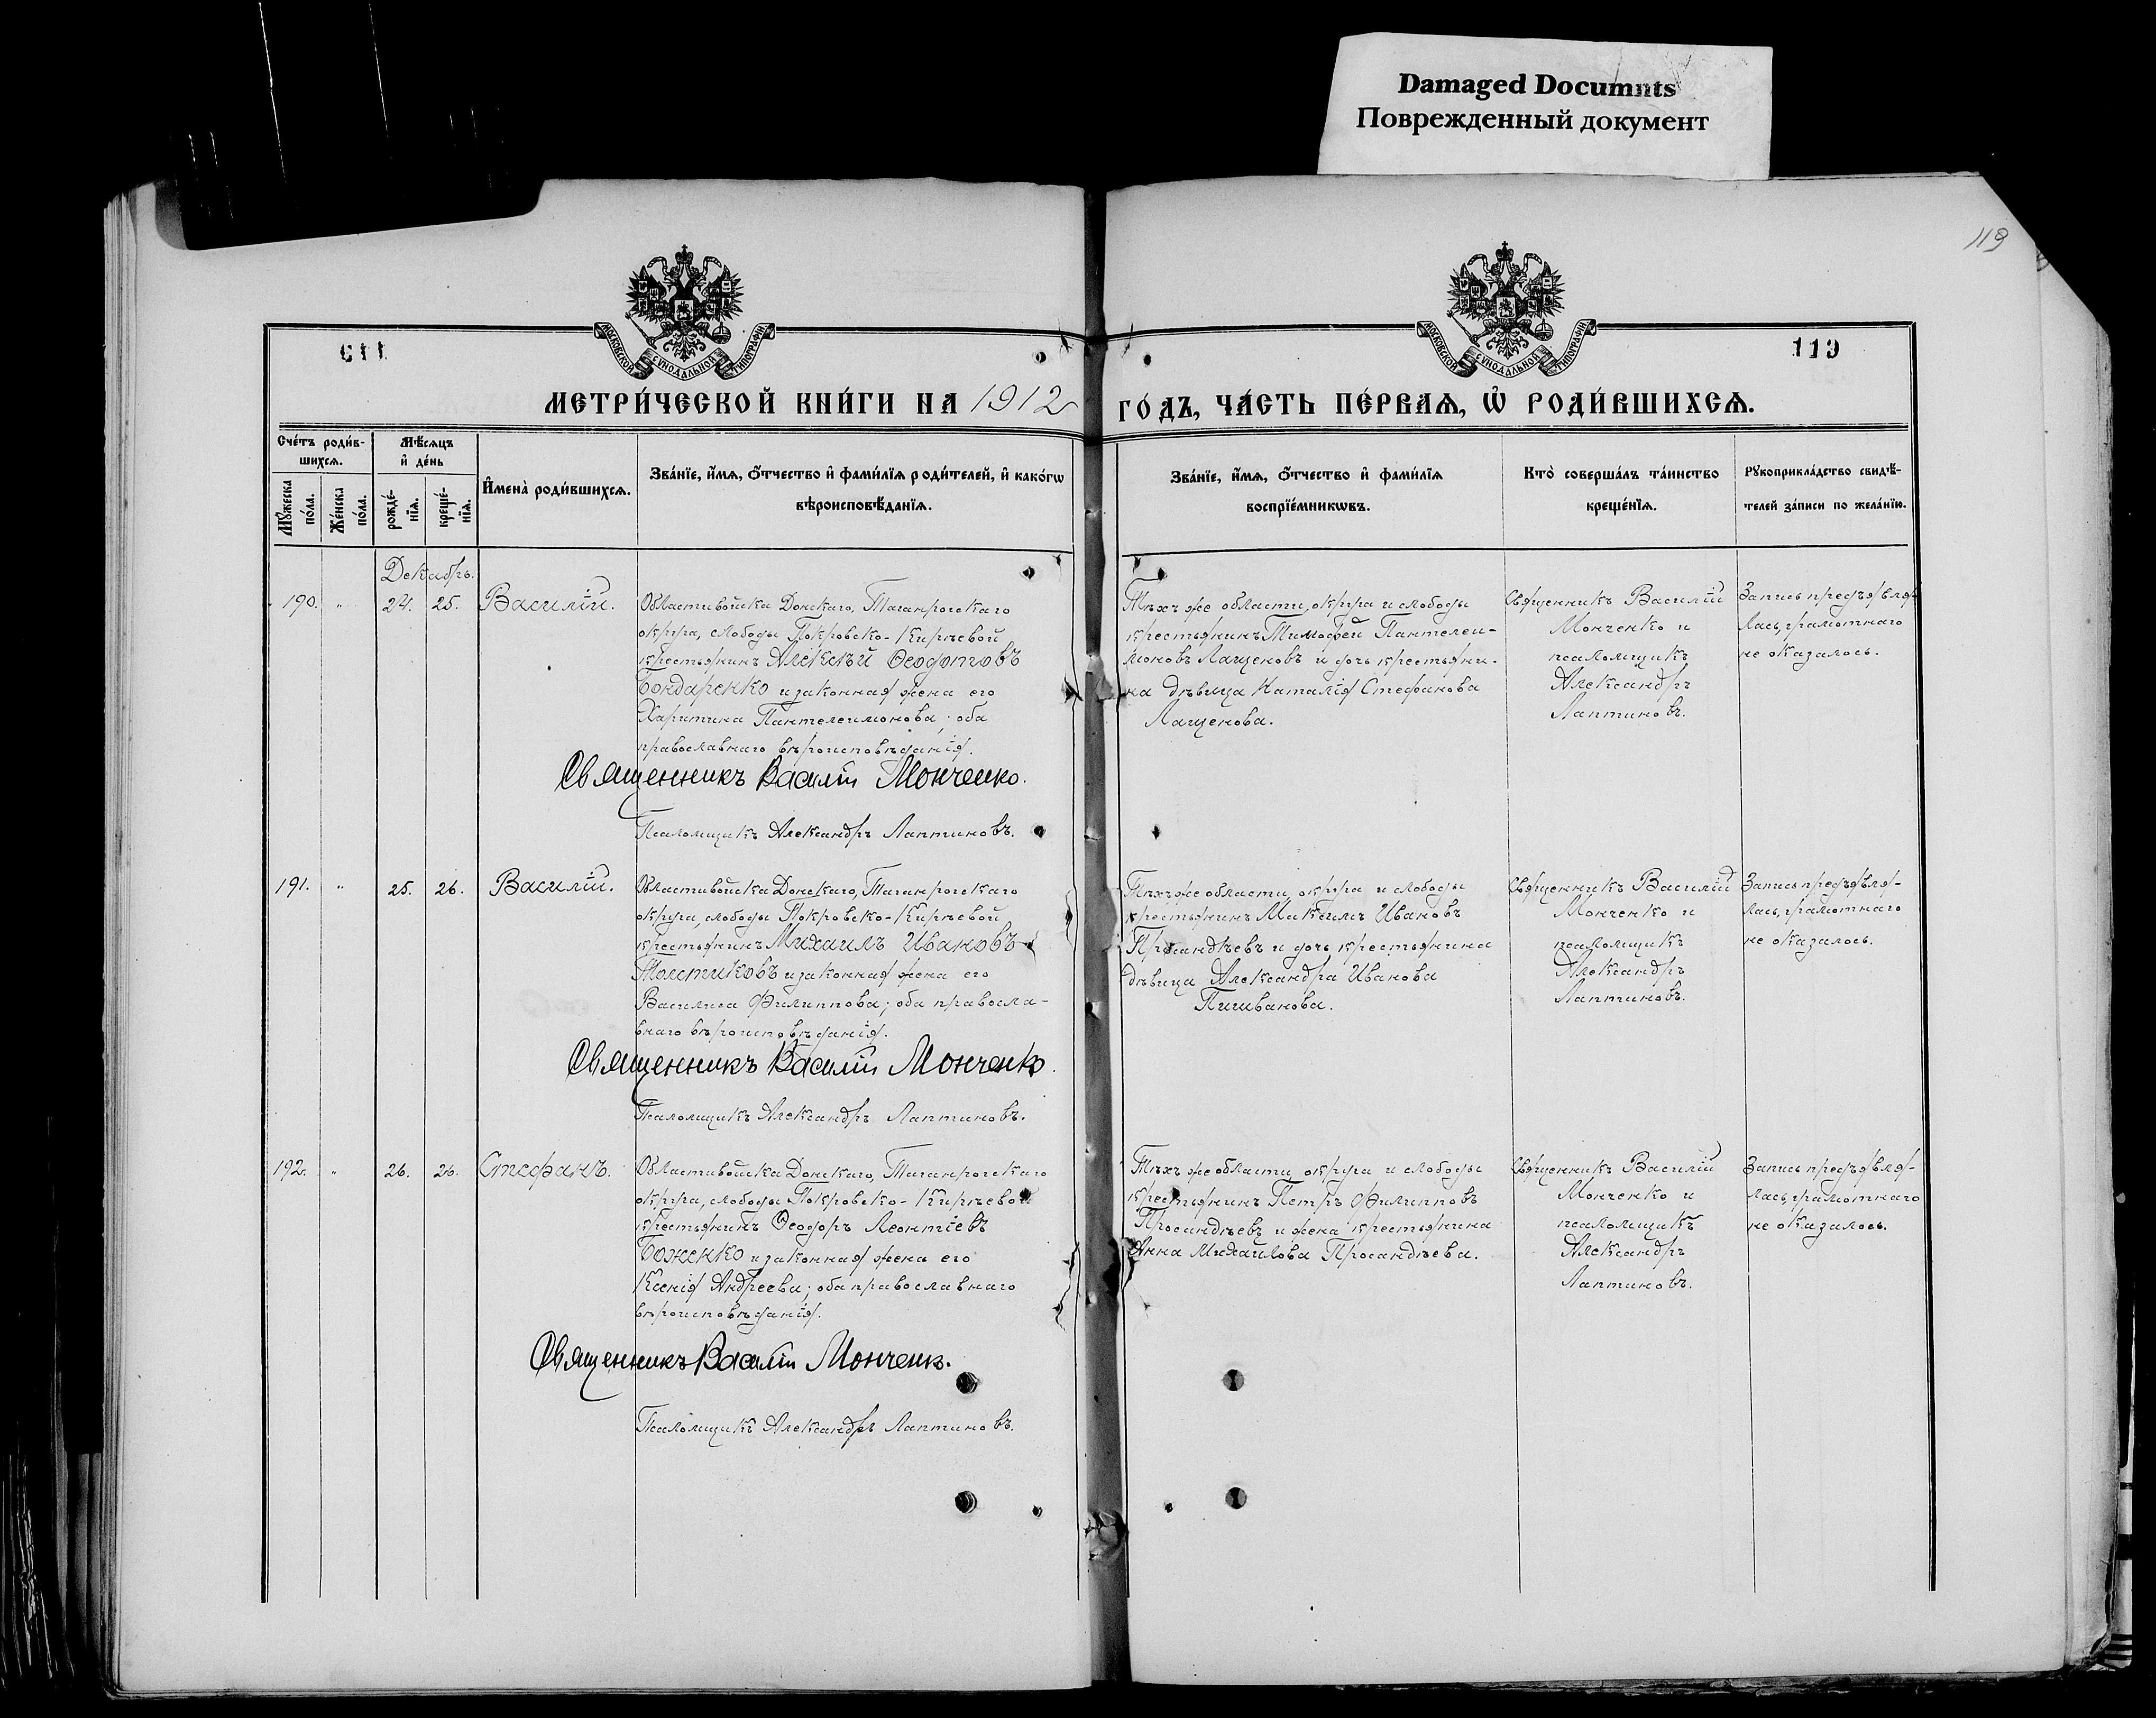 Damaged Documnts
Поврежденный документ
119
119
МОСКОВСКОЙ СѴНОДАЛЬНОЙ ТИПОГРАФІИ
МОСКОВСКОЙ СѴНОДАЛЬНОЙ ТИПОГРАФІИ
МЕТРИ́ЧЕСКОЙ КНИ́ГИ НА 1912 ГО́ДЪ, ЧА́СТЬ ПЕ́РВАѦ, Ѡ҆ РОДИ́ВШИХСѦ.
Сче́тъ роди́в-
шихсѧ.
Мѣ́сѧцъ
и҆ де́нь
Мꙋ́жеска по́ла.
Же́нска по́ла.
рожде́-
нїѧ.
креще́-
нїѧ.
И҆мена̀ роди́вшихсѧ.
Зва́нїе, и҆́мѧ, ѻ҆́тчество и҆ фами́лїѧ роди́телей, и҆ како́гѡ
вѣроисповѣ́данїѧ.
Зва́нїе, и҆́мѧ, ѻ҆́тчество и҆ фами́лїѧ
воспрїе́мникѡвъ.
Кто̀ соверша́лъ та́инство
креще́нїѧ.
Рꙋкоприкла́дство свидѣ́-
телей за́писи по жела́нїю.
Декабрь.
190. " 24. 25. Василій.
Области войска Донскаго, Таганрогскаго
округа, слободы Покровско-Кирѣевой
крестьянинъ Алексѣй Ѳеодотовъ
Бондаренко и законная жена его
Харитина Пантелеимонова; оба
православнаго вѣроисповѣданія.
Священникъ Василій Монченко.
Псаломщикъ Александръ Лаптиновъ.
Тѣхъ же области, округа и слободы
крестьянинъ Тимофей Пантелеи-
моновъ Лащеновъ и дочь крестьяни-
на дѣвица Наталія Стефанова
Лащенова.
Священникъ Василій
Монченко и
псаломщикъ
Александръ
Лаптиновъ.
Запись предъявля-
лась, грамотнаго
не оказалось.
191. " 25. 26. Василій.
Области войска Донскаго, Таганрогскаго
округа, слободы Покровско-Кирѣевой
крестьянинъ Михаилъ Ивановъ
Толстиковъ и законная жена его
Василиса Филиппова; оба правосла-
внаго вѣроисповѣданія.
Священникъ Василій Монченко.
Псаломщикъ Александръ Лаптиновъ.
Тѣхъ же области, округа и слободы
крестьянинъ Максимъ Ивановъ
Просандѣевъ и дочь крестьянина
дѣвица Александра Иванова
Пишванова.
Священникъ Василій
Монченко и
псаломщикъ
Александръ
Лаптиновъ.
Запись предъявля-
лась, грамотнаго
не оказалось.
192. " 26. 26. Стефанъ.
Области войска Донскаго, Таганрогскаго
округа, слободы Покровско-Кирѣевой
крестьянинъ Ѳеодоръ Леонтіевъ
Боженко и законная жена его
Ксенія Андреева; оба православнаго
вѣроисповѣданія.
Священникъ Василій Монченко.
Псаломщикъ Александръ Лаптиновъ.
Тѣхъ же области, округа и слободы
крестьянинъ Петръ Филипповъ
Просандѣевъ и жена крестьянина
Анна Михайлова Просандѣева.
Священникъ Василій
Монченко и
псаломщикъ
Александръ
Лаптиновъ.
Запись предъявля-
лась, грамотнаго
не оказалось.